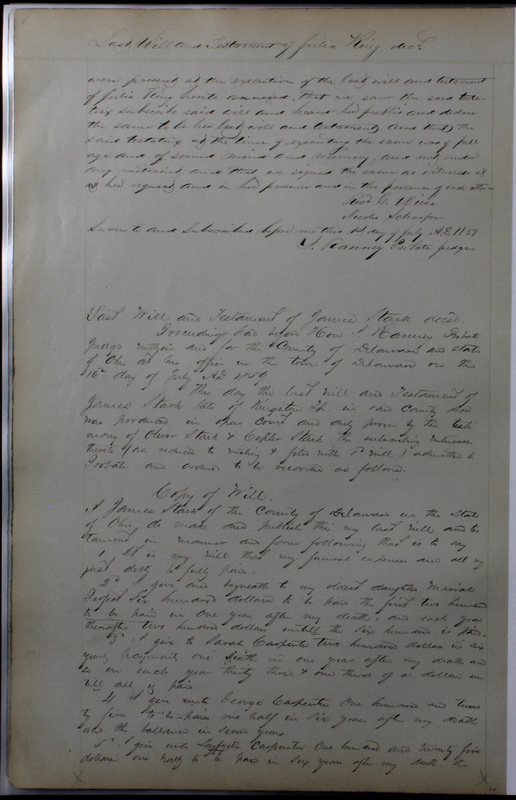 Last Will and Testament of Julia King decd
were present at the execution of the last will and testament
of Julia King hereto annexed, that we saw the said testa-
trix subscribe said will and heard her publish and declare
the same to be her last will and testament, and that the
said testatrix at the time of executing the same was of full
age and of sound mind and memory, and not under
any restraint and that we signed the same as witnesses at
at her request and in her presence and in the presence of each other
Sworn to and Subscribed before me this day of July A.D. 1859
T. Ranney Probate Judge
Last Will and Testament of James Stark decd.
Proceedings had before Hon T. Ranney Probate
Judge within and for the County of Delaware and state
of Ohio at his office in the town of Delaware on the
16th day of July AD 1859
This day the last Will and Testament of
James Stark late of Kingston Tp. in said County decd
was produced in open Court and duly proven by the testi
mony of Oliver Stark & Stark the subscribing witnesses
thereto was reduced to writing & filed with sd Will) admitted to
Probate and ordered to be recorded as follows.
Copy of Will.
I James Stark of the County of Delaware in the State
of Ohio, do make and publish this my last Will and tes
tament in manner and form following that is to say
1 It is my will that my funeral expenses and all my
just debts be fully paid.
2d I give and bequeath to my oldest daughter
Six hundred dollars to be paid the first two hundred
to be paid in One year after my death, and each year
thereafter two hundred dollars untill the Six hundred is paid.
3d I give to Sarah Carpenter two hundred dollars in six
yearly payments one Sixth in one year after my death and
so on each year thirty three & one third of a dollar un
till all is paid
4 I give unto George Carpenter One hundred and twen
ty five to be paid one half in Six years after my death
and the ballance in seven years.
5th I give unto Carpenter One hundred and twenty five
dollars one half to be paid in Six years after my death the